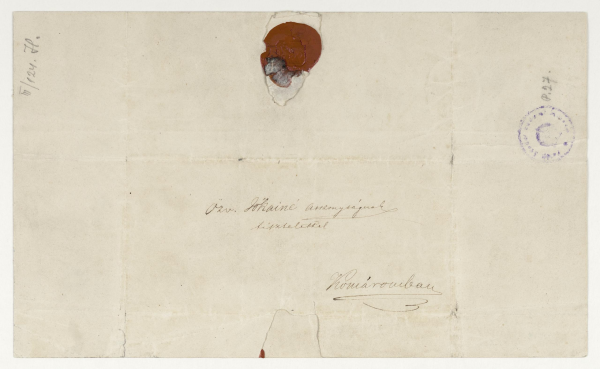 Özv. Jókainé asszonyságnak
tisztelettel
Komáromban